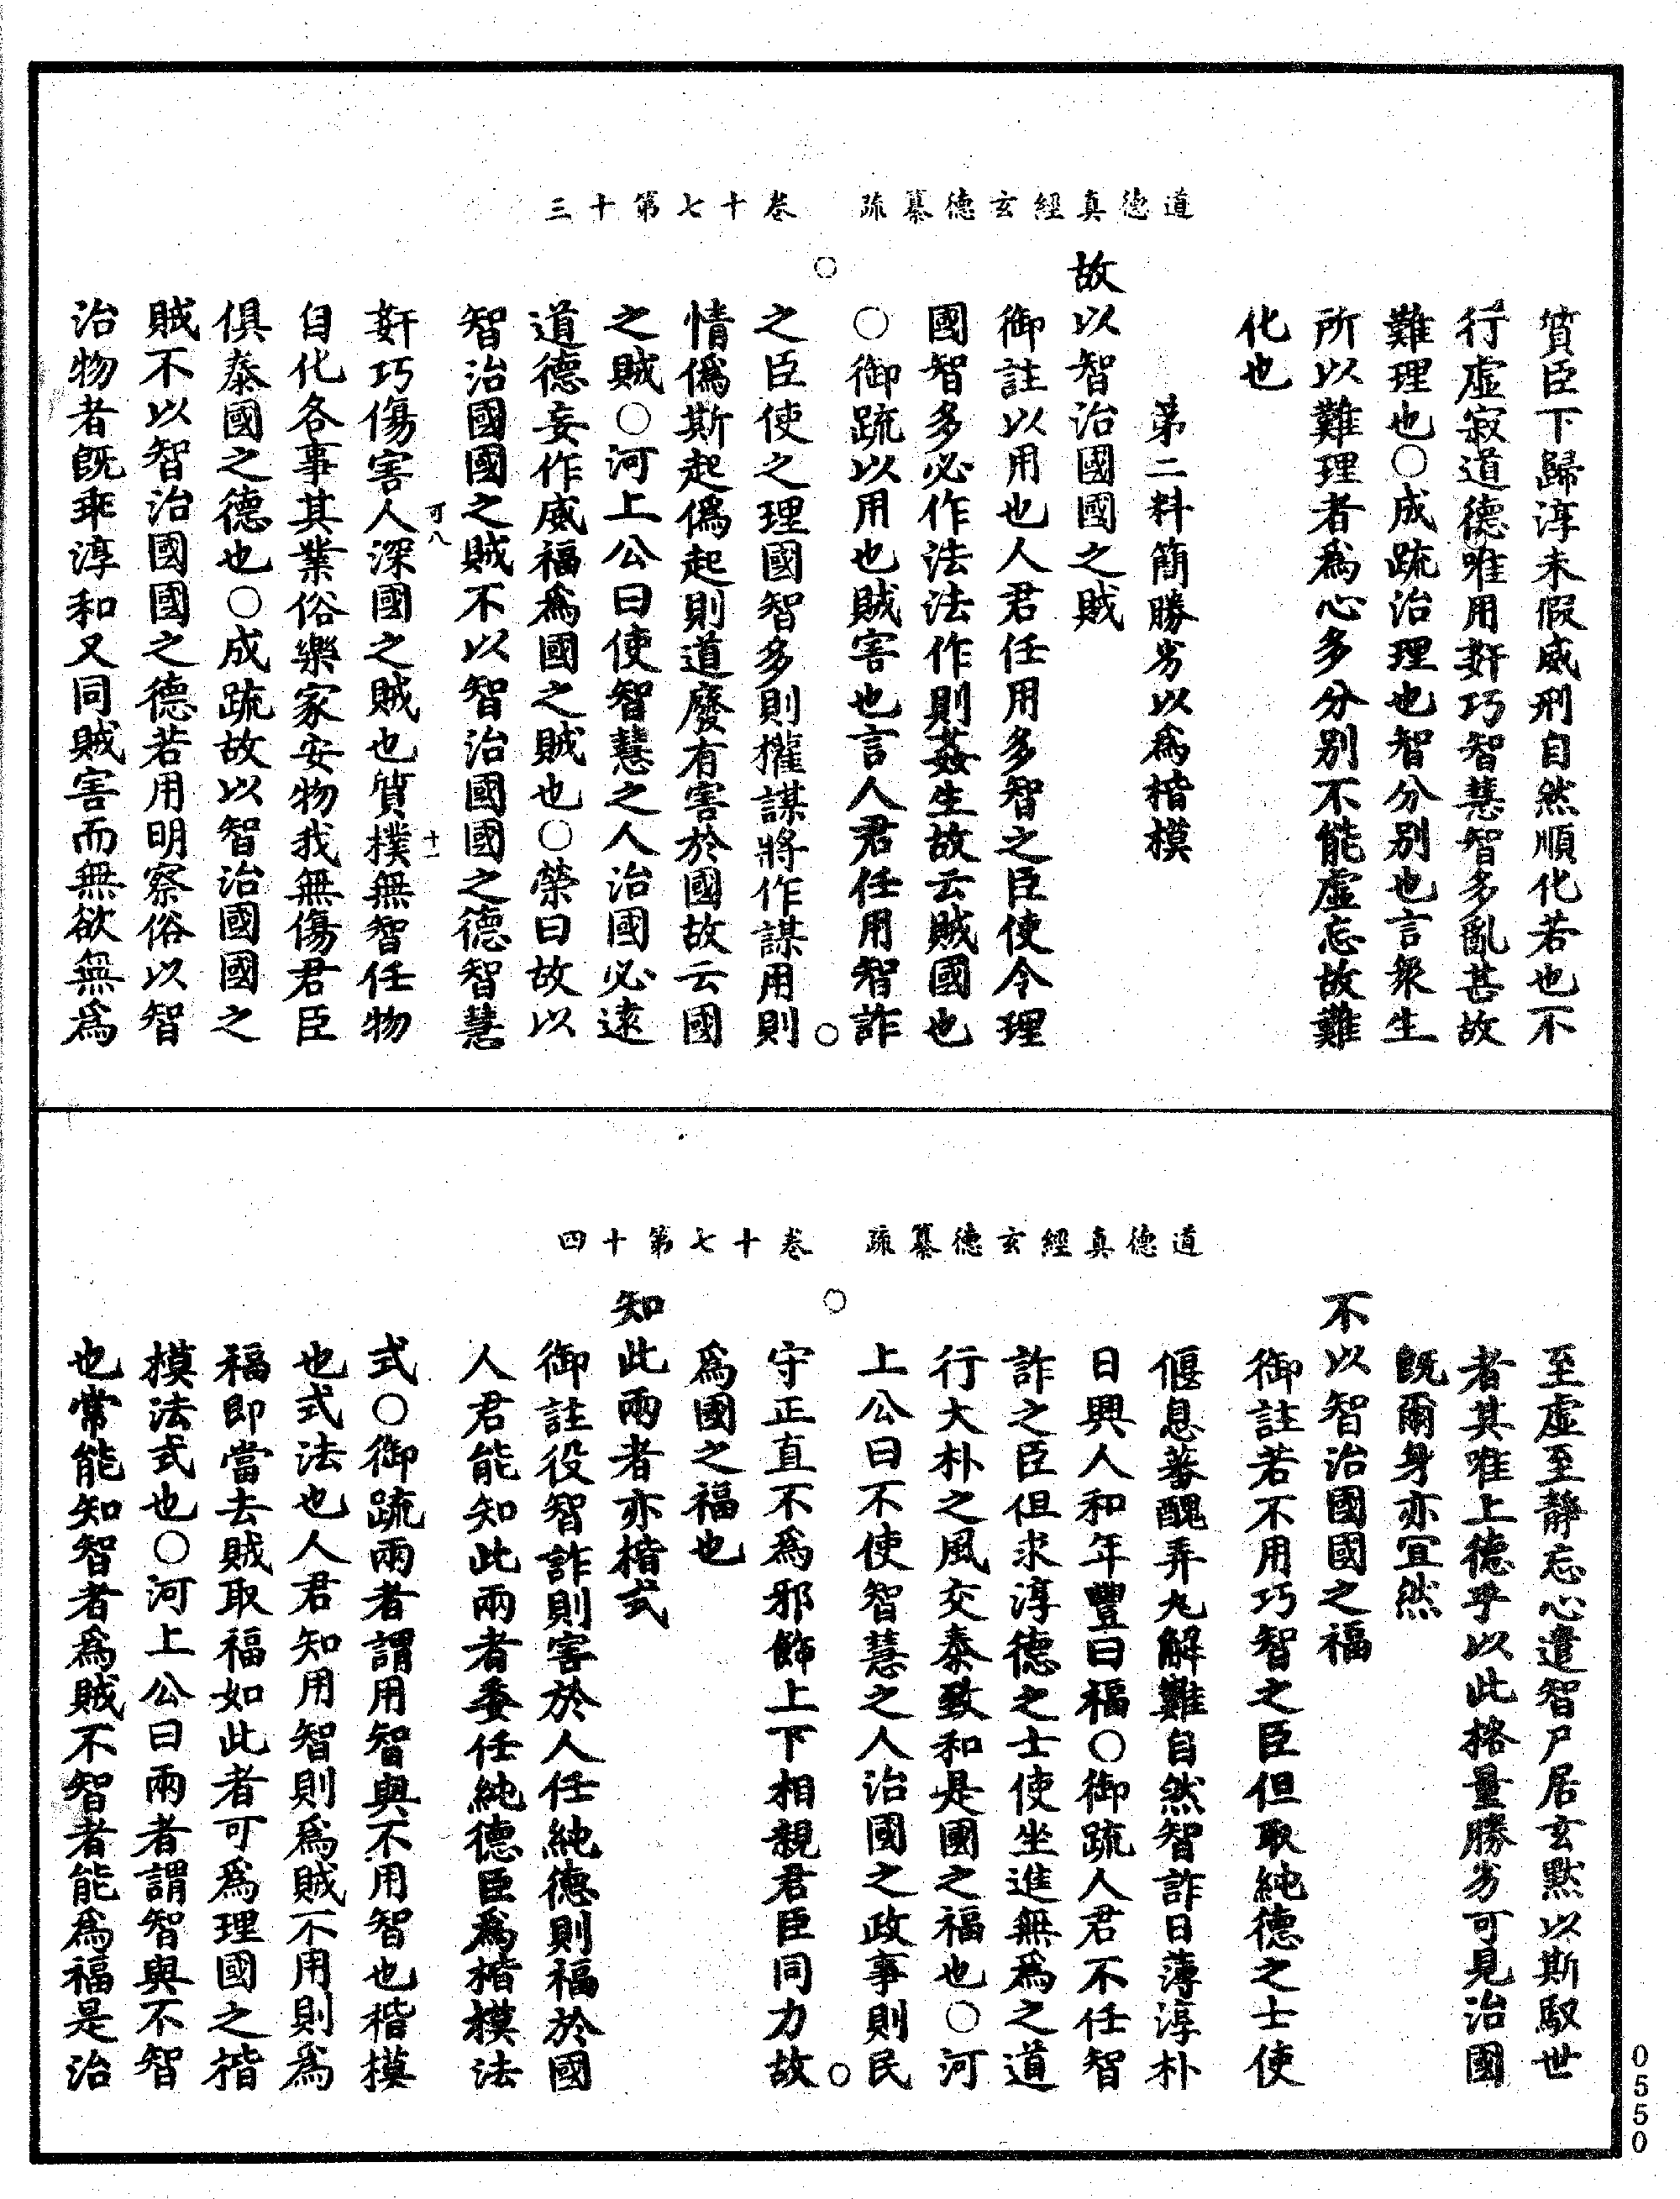 道德真經玄德纂疏　卷十七第十三
質臣下歸淳未假威刑自然順化若也不
行虛寂道德唯用姧巧智慧智多亂甚故
難理也○成疏治理也智分別也言衆生
所以難理者爲心多分別不能虛忘故難
化也
第二料簡勝劣以爲楷模
故以智治國國之賊
御註以用也人君任用多智之臣使令理
國智多必作法法作則姦生故云賊國也
○御疏以用也賊害也言人君任用智詐
之臣使之理國智多則權謀將作謀用則
情僞斯起僞起則道廢有害於國故云國
之賊○河上公曰使智慧之人治國必遠
道德妄作威福爲國之賊也○榮曰故以
智治國國之賊不以智治國國之德智慧
可八　十一
姧巧傷害人深國之賊也質樸無智任物
自化各事其業俗樂家安物我無傷君臣
俱泰國之德也○成疏故以智治國國之
賊不以智治國國之德若用明察俗以智
治物者旣乖淳和又同賊害而無欲無爲
道德真經玄德纂疏　卷十七第十四
至虛至靜忘心遣智尸居玄默以斯馭世
者其唯上德乎以此格量勝劣可見治國
旣爾身亦宜然
不以智治國國之福
御註若不用巧智之臣但取純德之士使
偃息蕃醜弄丸解難自然智詐日薄淳朴
日興人和年豐曰福○御疏人君不任智
詐之臣但求淳德之士使坐進無爲之道
行大朴之風交泰致和是國之福也○河
上公曰不使智慧之人治國之政事則民
守正直不爲邪飾上下相親君臣同力故
爲國之福也
知此兩者亦楷式
御註役智詐則害於人任純德則福於國
人君能知此兩者委任純德臣爲楷模法
式○御疏兩者謂用智與不用智也楷模
也式法也人君知用智則爲賊不用則爲
福即當去賊取福如此者可爲理國之楷
模法式也○河上公曰兩者謂智與不智
也常能知智者爲賊不智者能爲福是治
0550